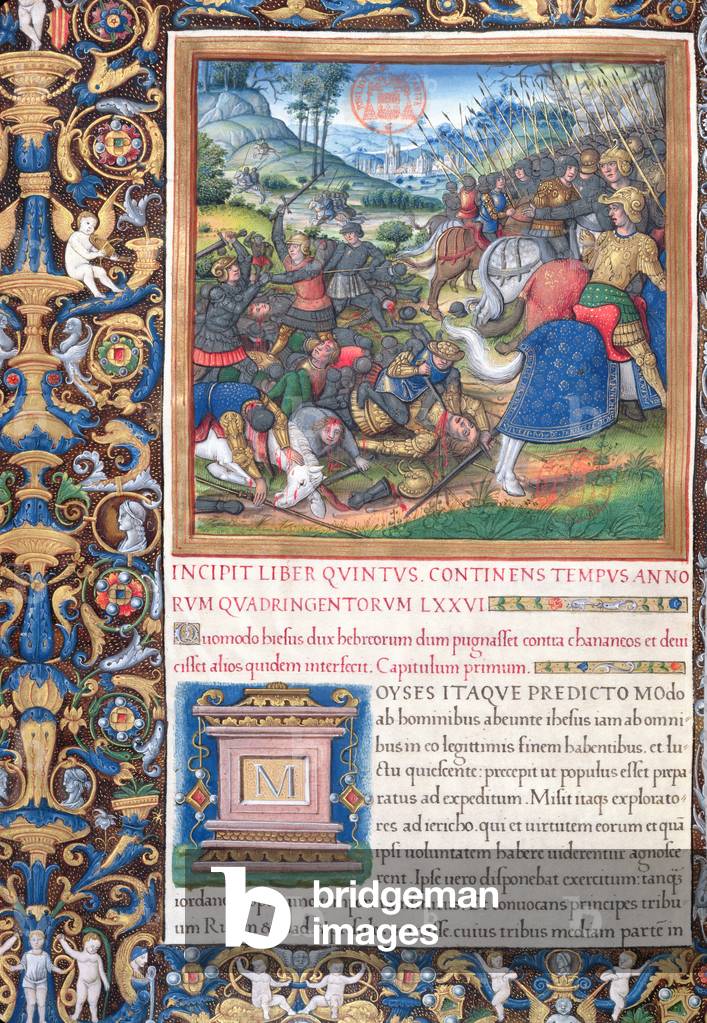 INCIPIT LIBER QVINTVS. CONTINENS TEMPVS ANNO
RVM QVADRINGENTORVM LXXVI
Quomodo hiesus dux hebreorum dum pugnasset contra chananeos et deui
cisset alios quidem interfecit. Capitulum primum.
M
OYSES ITAQVE PREDICTO MOdo
ab hominibus abeunte ihesus iam ab omni-
bus in eo legittimis finem habentibus. et lu-
ctu quiescente: precepit ut populus esset prepa
ratus ad expeditum. Misit itaqs explorato-
res ad iericho. qui et uirtutem eorum et quā
ipsi uoluntatem habere uiderentur agnosce
rent. Ipse uero disponebat exercitum: tanqs
iordanē conuocans principes tribu
um Ru cuius tribus mediam partē in
b bridgeman
images